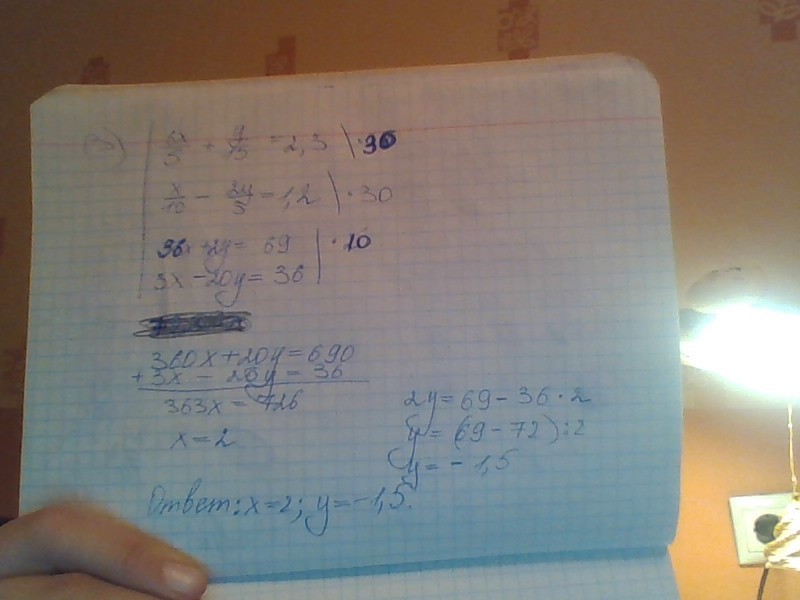 6x/5 + y/15 = 2,3 | ·30
x/10 - 2y/3 = 1,2 | ·30
36x + 2y = 69 | ·10
3x - 20y = 36
360x + 20y = 690
+ 3x - 20y = 36
363x = 726
x = 2
2y = 69 - 36 · 2
y = (69 - 72) : 2
y = -1,5
Ответ: x = 2; y = -1,5.